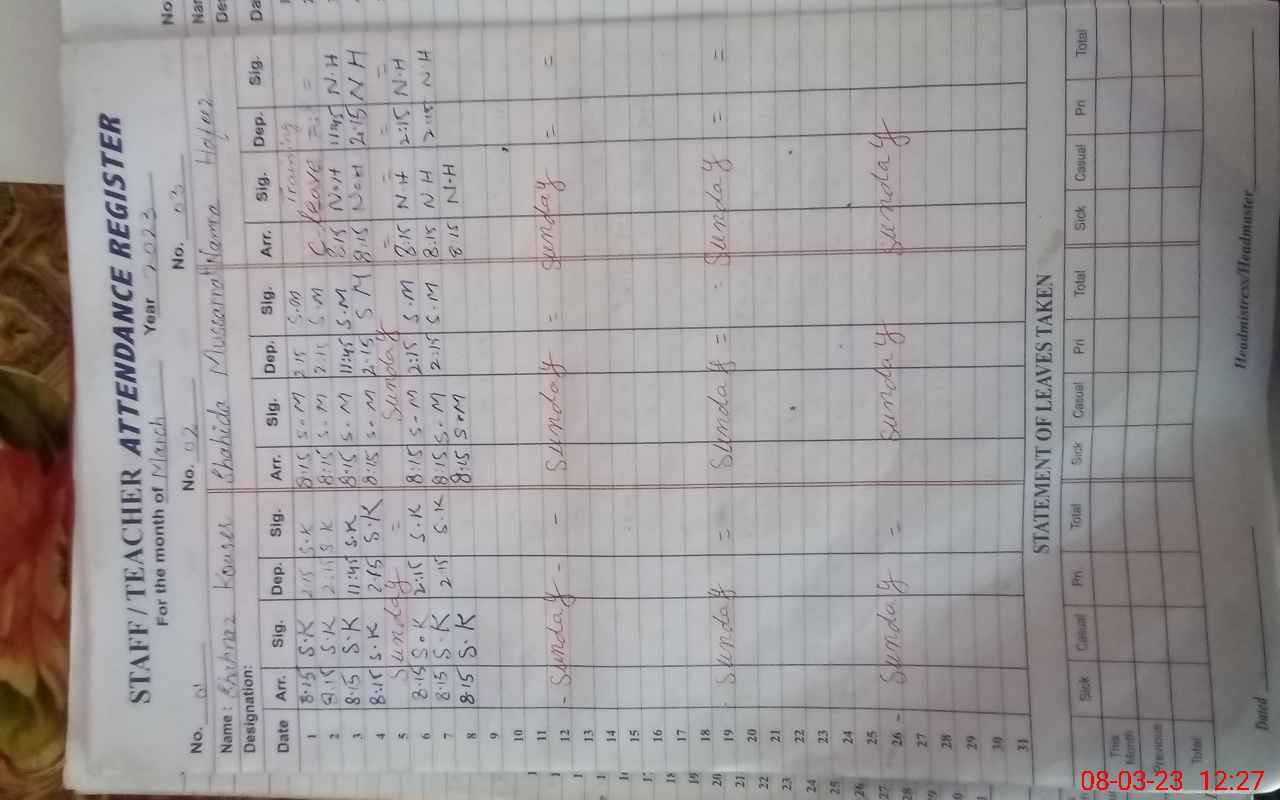 STAFF / TEACHER ATTENDANCE REGISTER
For the month of March Year 2023
No. 01 No. 02 No. 03
Name: Shahnaz Kouser Shahida Mussarat Namra Hafeez
Designation:
Date Arr. Sig. Dep. Sig. Arr. Sig. Dep. Sig. Arr. Sig. Dep. Sig.
1 8:15 S.K 2:15 S.K 8:15 S.M 2:15 S.M Training
2 8:15 S.K 2:15 S.K 8:15 S.M 2:15 S.M C.leave =
3 8:15 S.K 11:45 S.K 8:15 S.M 11:45 S.M 8:15 N.H 11:45 N.H
4 8:15 S.K 2:15 S.K 8:15 S.M 2:15 S.M 8:15 N.H 2:15 N H
5 Sunday = Sunday = = = =
6 8:15 S.K 2:15 S.K 8:15 S.M 2:15 S.M 8:15 N.H 2:15 N.H
7 8:15 S.K 2:15 S.K 8:15 S.M 2:15 S.M 8:15 N H 2:15 N.H
8 8:15 S.K 8:15 S.M 8:15 N.H
9
10
11
12 - Sunday - - Sunday = Sunday = =
13
14
15
16
17
18
19 Sunday = Sunday = - Sunday = =
20
21
22
23
24
25
26 - Sunday = Sunday Sunday
27
28
29
30
31
STATEMENT OF LEAVES TAKEN
Sick Casual Pri Total Sick Casual Pri Total Sick Casual Pri Total
This Month
Previous
Total
Dated Headmistress/Headmaster
08-03-23 12:27